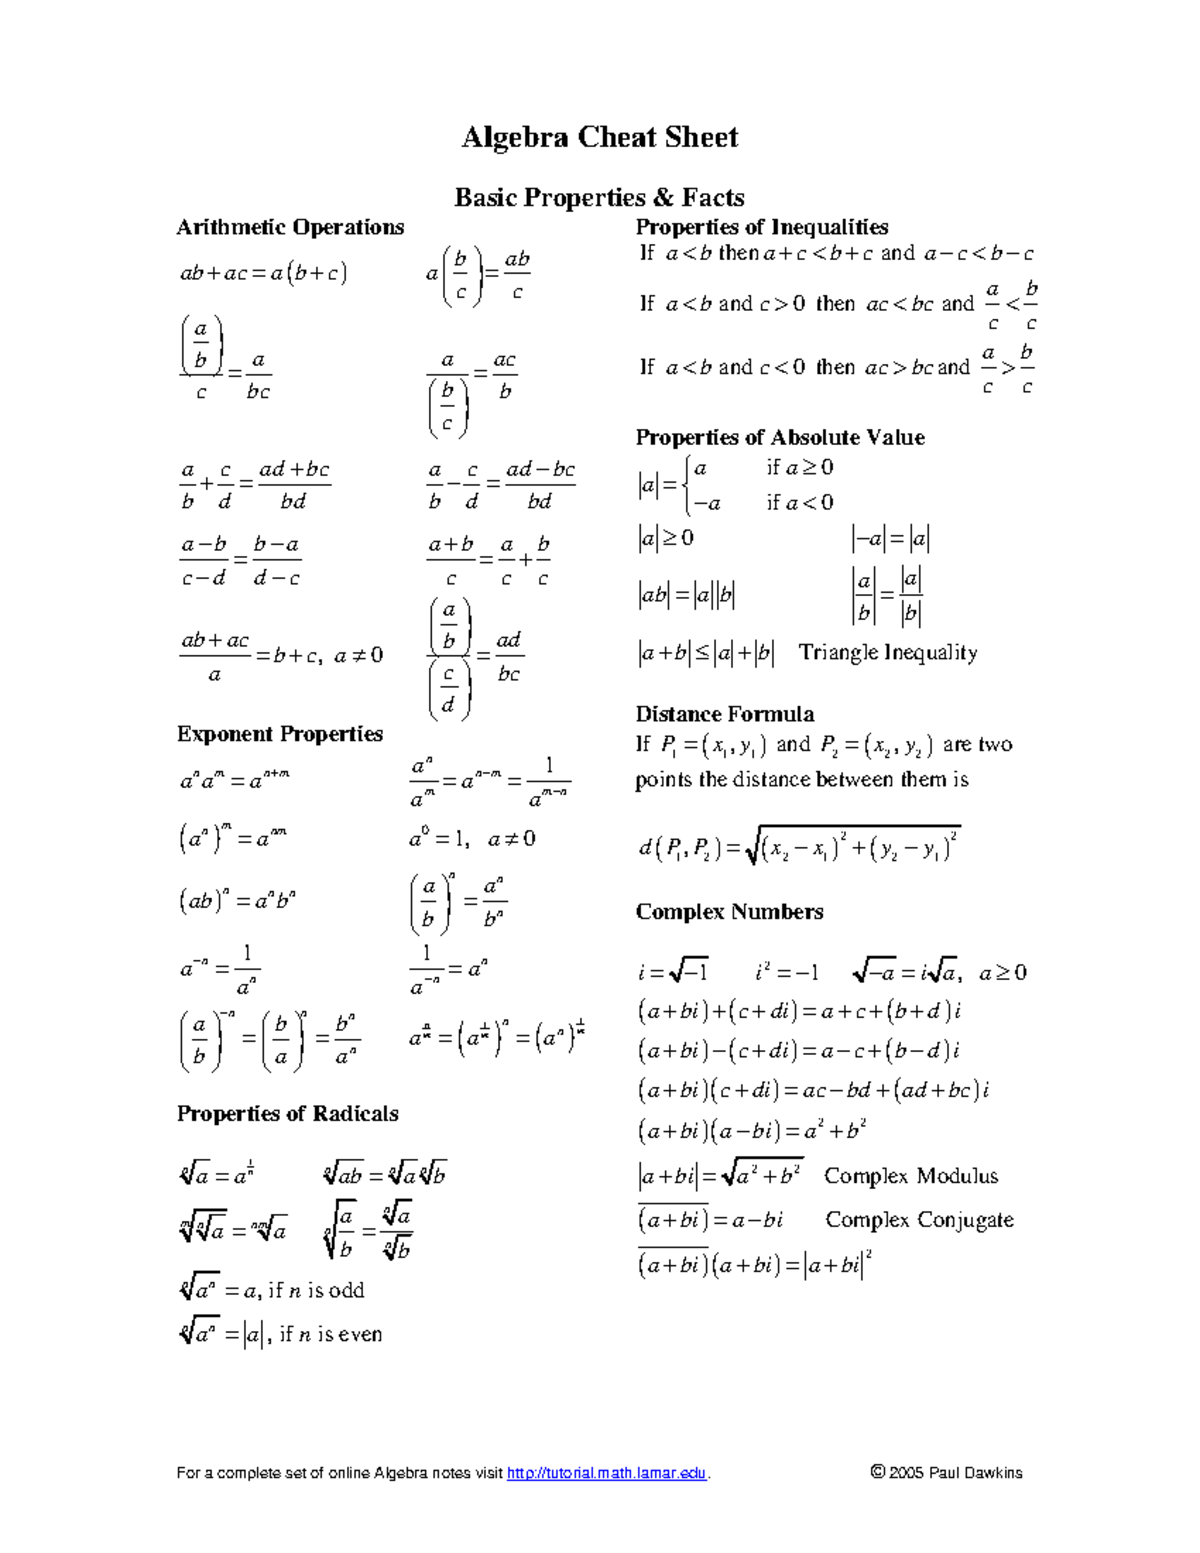 Algebra Cheat Sheet
Basic Properties & Facts
Arithmetic Operations
ab + ac = a(b + c)    a(b/c) = ab/c
(a/b)/c = a/(bc)    a/(b/c) = ac/b
a/b + c/d = (ad + bc)/(bd)    a/b − c/d = (ad − bc)/(bd)
(a − b)/(c − d) = (b − a)/(d − c)    (a + b)/c = a/c + b/c
(ab + ac)/a = b + c, a ≠ 0    (a/b)/(c/d) = ad/(bc)
Exponent Properties
aⁿaᵐ = aⁿ⁺ᵐ    aⁿ/aᵐ = aⁿ⁻ᵐ = 1/aᵐ⁻ⁿ
(aⁿ)ᵐ = aⁿᵐ    a⁰ = 1, a ≠ 0
(ab)ⁿ = aⁿbⁿ    (a/b)ⁿ = aⁿ/bⁿ
a⁻ⁿ = 1/aⁿ    1/a⁻ⁿ = aⁿ
(a/b)⁻ⁿ = (b/a)ⁿ = bⁿ/aⁿ    a^(n/m) = (a^(1/m))ⁿ = (aⁿ)^(1/m)
Properties of Radicals
ⁿ√a = a^(1/n)    ⁿ√(ab) = ⁿ√a ⁿ√b
ᵐ√(ⁿ√a) = ⁿᵐ√a    ⁿ√(a/b) = ⁿ√a/ⁿ√b
ⁿ√(aⁿ) = a, if n is odd
ⁿ√(aⁿ) = |a|, if n is even
Properties of Inequalities
If a < b then a + c < b + c and a − c < b − c
If a < b and c > 0 then ac < bc and a/c < b/c
If a < b and c < 0 then ac > bc and a/c > b/c
Properties of Absolute Value
|a| = { a if a ≥ 0
−a if a < 0
|a| ≥ 0    |−a| = |a|
|ab| = |a||b|    |a/b| = |a|/|b|
|a + b| ≤ |a| + |b| Triangle Inequality
Distance Formula
If P₁ = (x₁, y₁) and P₂ = (x₂, y₂) are two
points the distance between them is
d(P₁, P₂) = √((x₂ − x₁)² + (y₂ − y₁)²)
Complex Numbers
i = √−1    i² = −1    √−a = i√a, a ≥ 0
(a + bi) + (c + di) = a + c + (b + d)i
(a + bi) − (c + di) = a − c + (b − d)i
(a + bi)(c + di) = ac − bd + (ad + bc)i
(a + bi)(a − bi) = a² + b²
|a + bi| = √(a² + b²) Complex Modulus
‾(a + bi)‾ = a − bi Complex Conjugate
‾(a + bi)‾(a + bi) = |a + bi|²
For a complete set of online Algebra notes visit http://tutorial.math.lamar.edu.    © 2005 Paul Dawkins